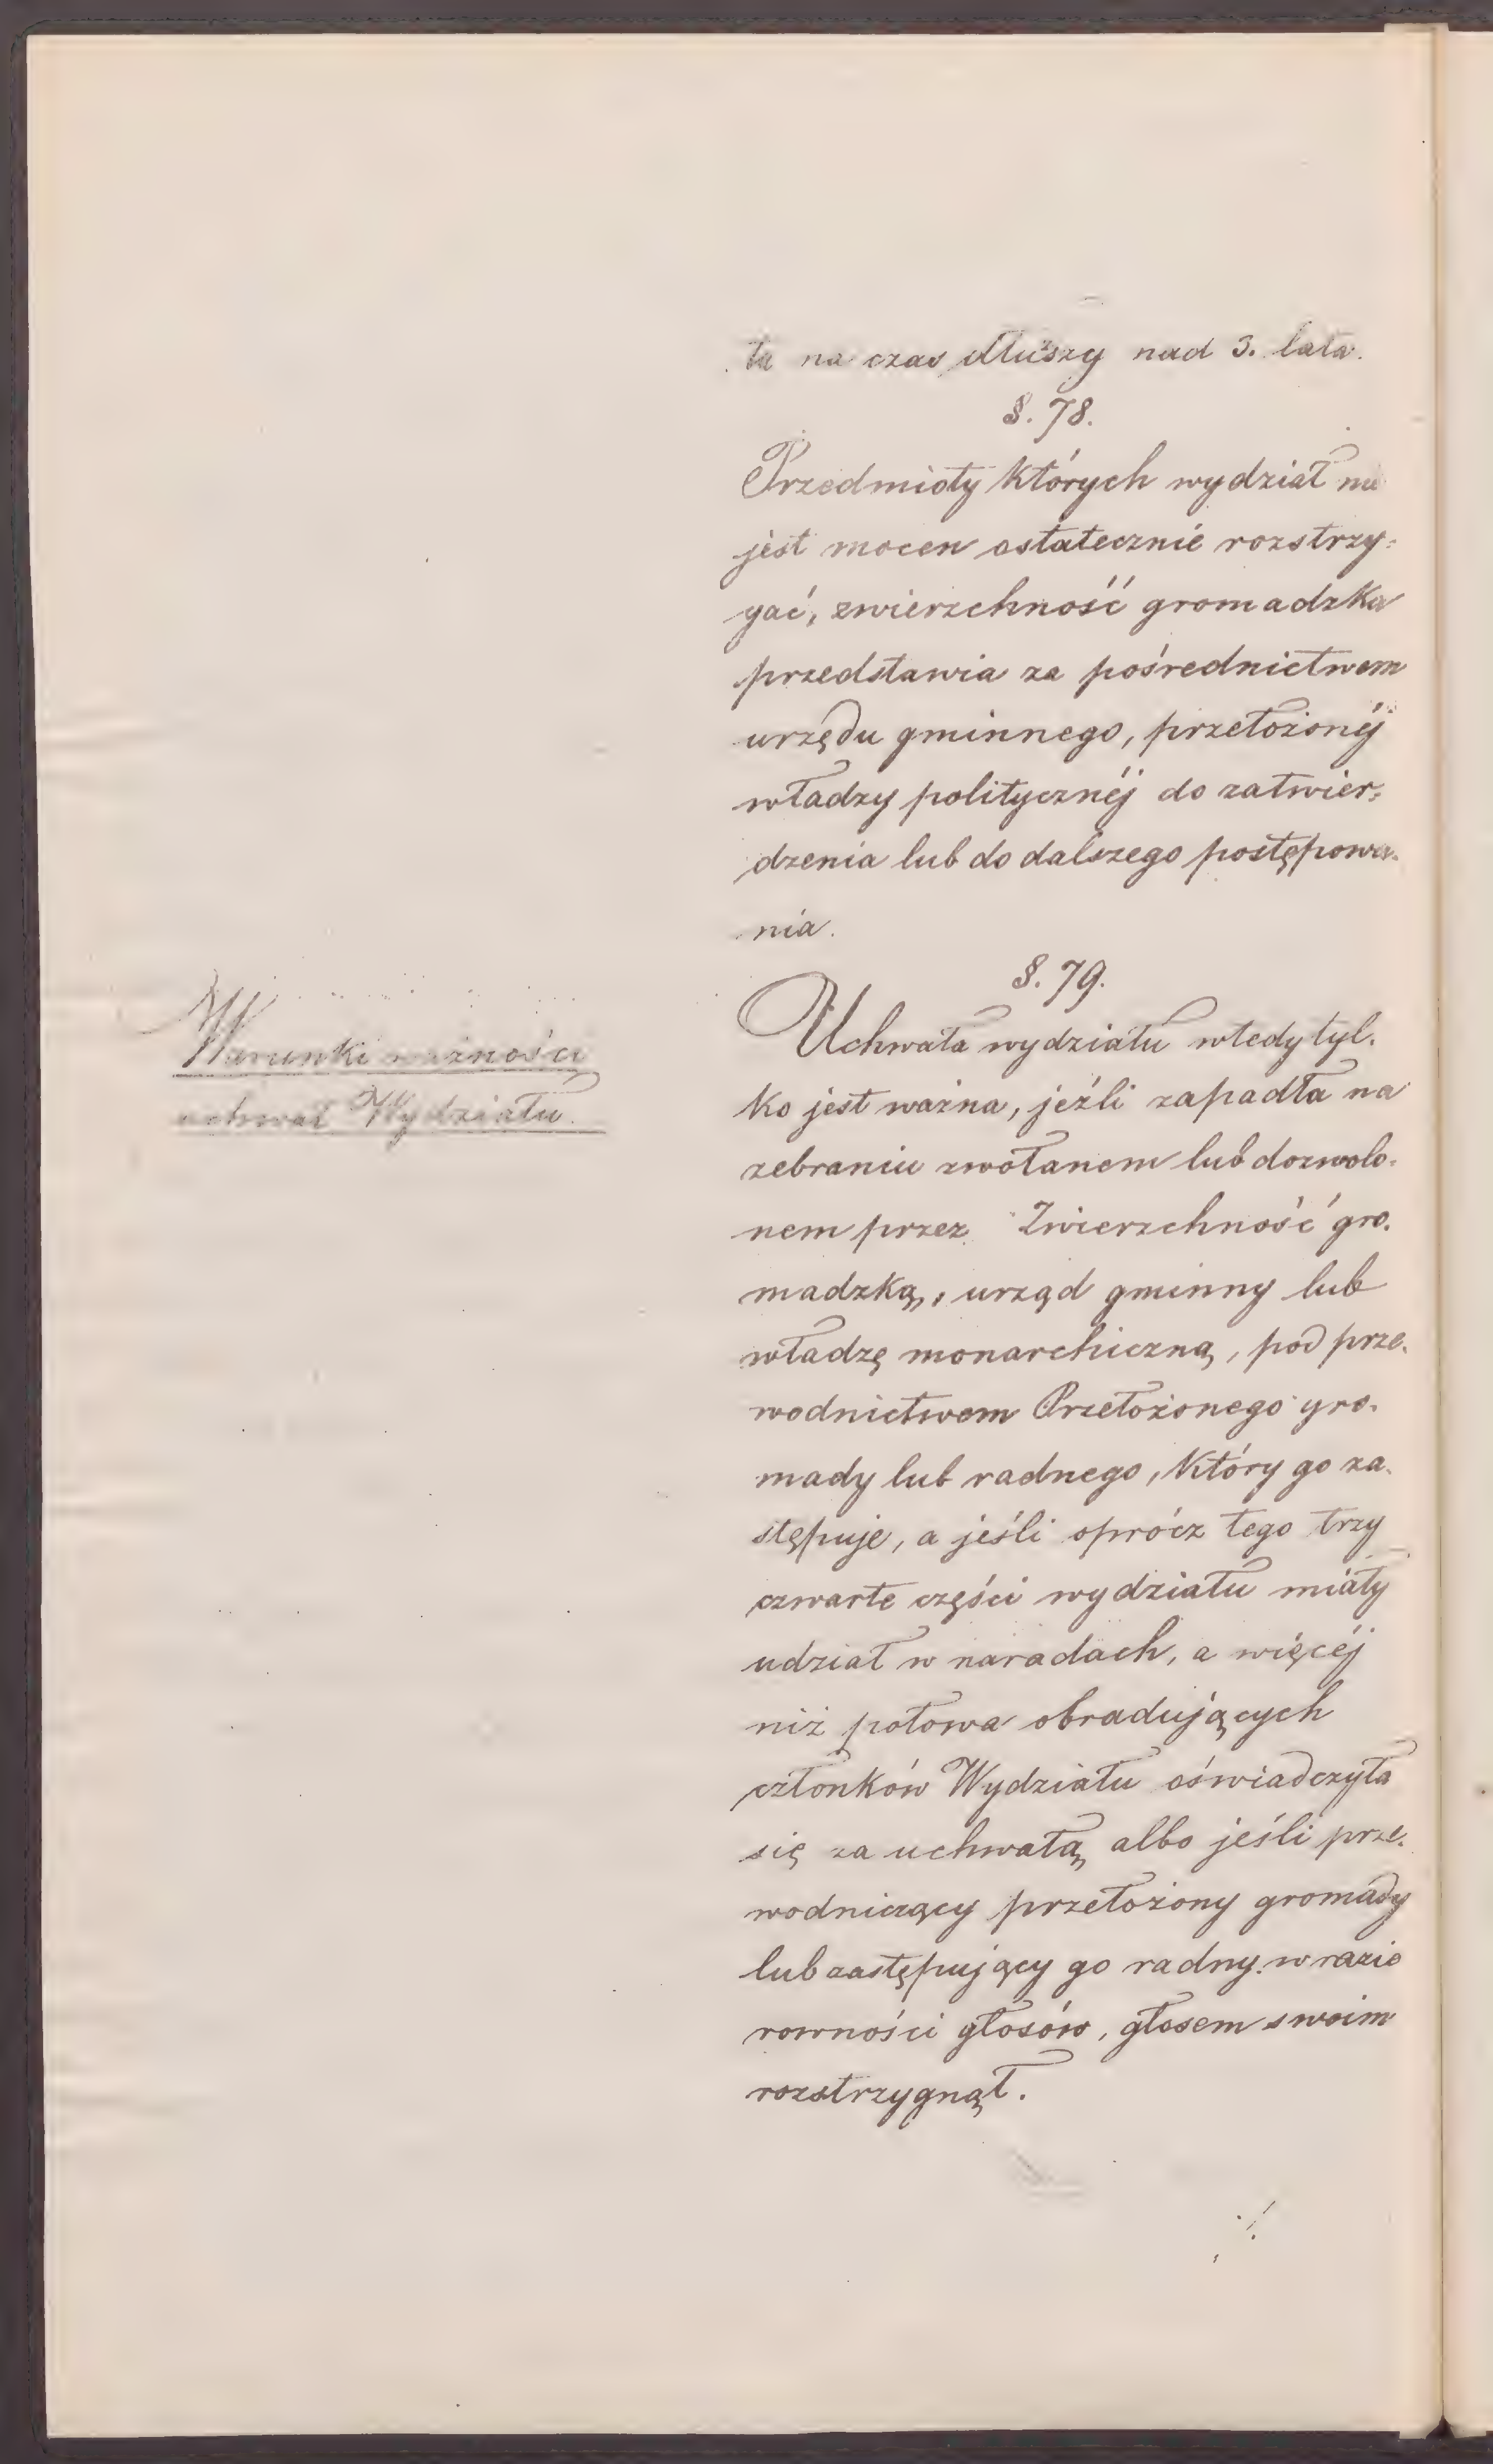 tu na czas dłuższy nad 3. lata.
§. 78.
Przedmioty których wydział nie
jest mocen ostatecznie rozstrzy-
gać, zwierzchność gromadzka
przedstawia za pośrednictwem
urzędu gminnego, przełożonéj
władzy politycznéj do zatwier-
dzenia lub do dalszego postępowa-
nia.
§. 79.
Warunki ważności
uchwał Wydziału.
Uchwała wydziału wtedy tyl-
ko jest ważna, jeźli zapadła na
zebraniu zwołanem lub dozwolo-
nem przez Zwierzchność gro-
madzką, urząd gminny lub
władzę monarchiczną, pod prze-
wodnictwem Przełożonego gro-
mady lub radnego, który go za-
stępuje, a jeśli oprócz tego trzy
czwarte części wydziału miały
udział w naradach, a więcéj
niż połowa obradujących
członków Wydziału oświadczyła
się za uchwałą, albo jeśli prze-
wodniczący przełożony gromady
lub zastępujący go radny w razie
rowności głosów, głosem swoim
rozstrzygnął.